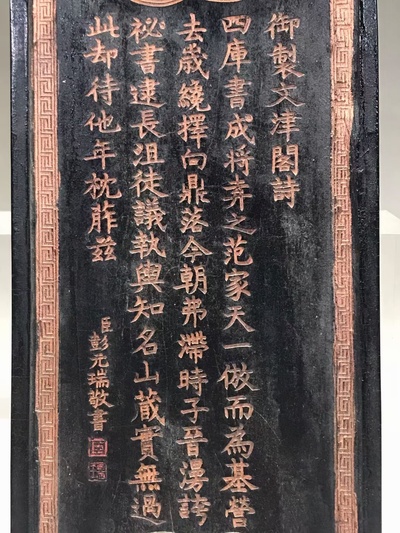 御製文津閣詩
四庫書成將弆之范家天一倣而為基營
去歲纔擇向鼎落今朝弗滯時子晉漫誇
祕書逮長沮徒議執輿知名山蔵實無過
此却待他年枕葄兹
臣彭元瑞敬書